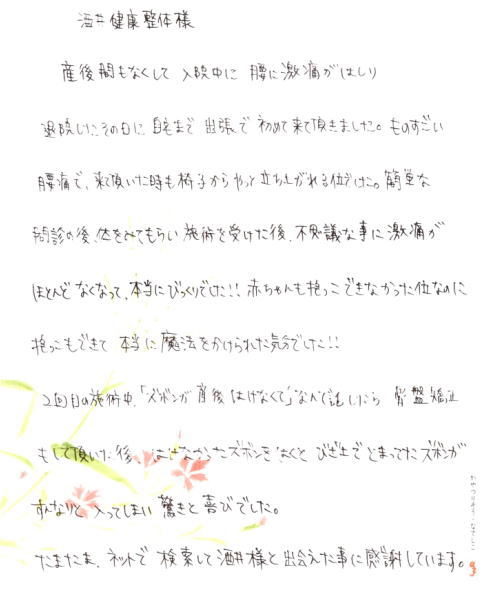 酒井健康整体様
産後間もなくして 入院中に 腰に激痛がはしり
退院したその日に 自宅まで 出張で 初めて来て頂きました。ものすごい
腰痛で、来て頂いた時も椅子からやっと立ち上がれる位でした。簡単な
問診の後、体をみてもらい 施術を受けた後、不思議な事に激痛が
ほとんど なくなって、本当にびっくりでした!! 赤ちゃんも抱っこできなかった位なのに
抱っこもできて 本当に 魔法をかけられた気分でした!!
2回目の施術中、「ズボンが 産後 はけなくて」なんて話したら 骨盤矯正
もして頂いた後、はけなかったズボンをはくと ひざ上で とまってたズボンが
すんなりと 入ってしまい 驚きと 喜びでした。
たまたま、ネットで 検索して 酒井様と 出会えた事に感謝しています。